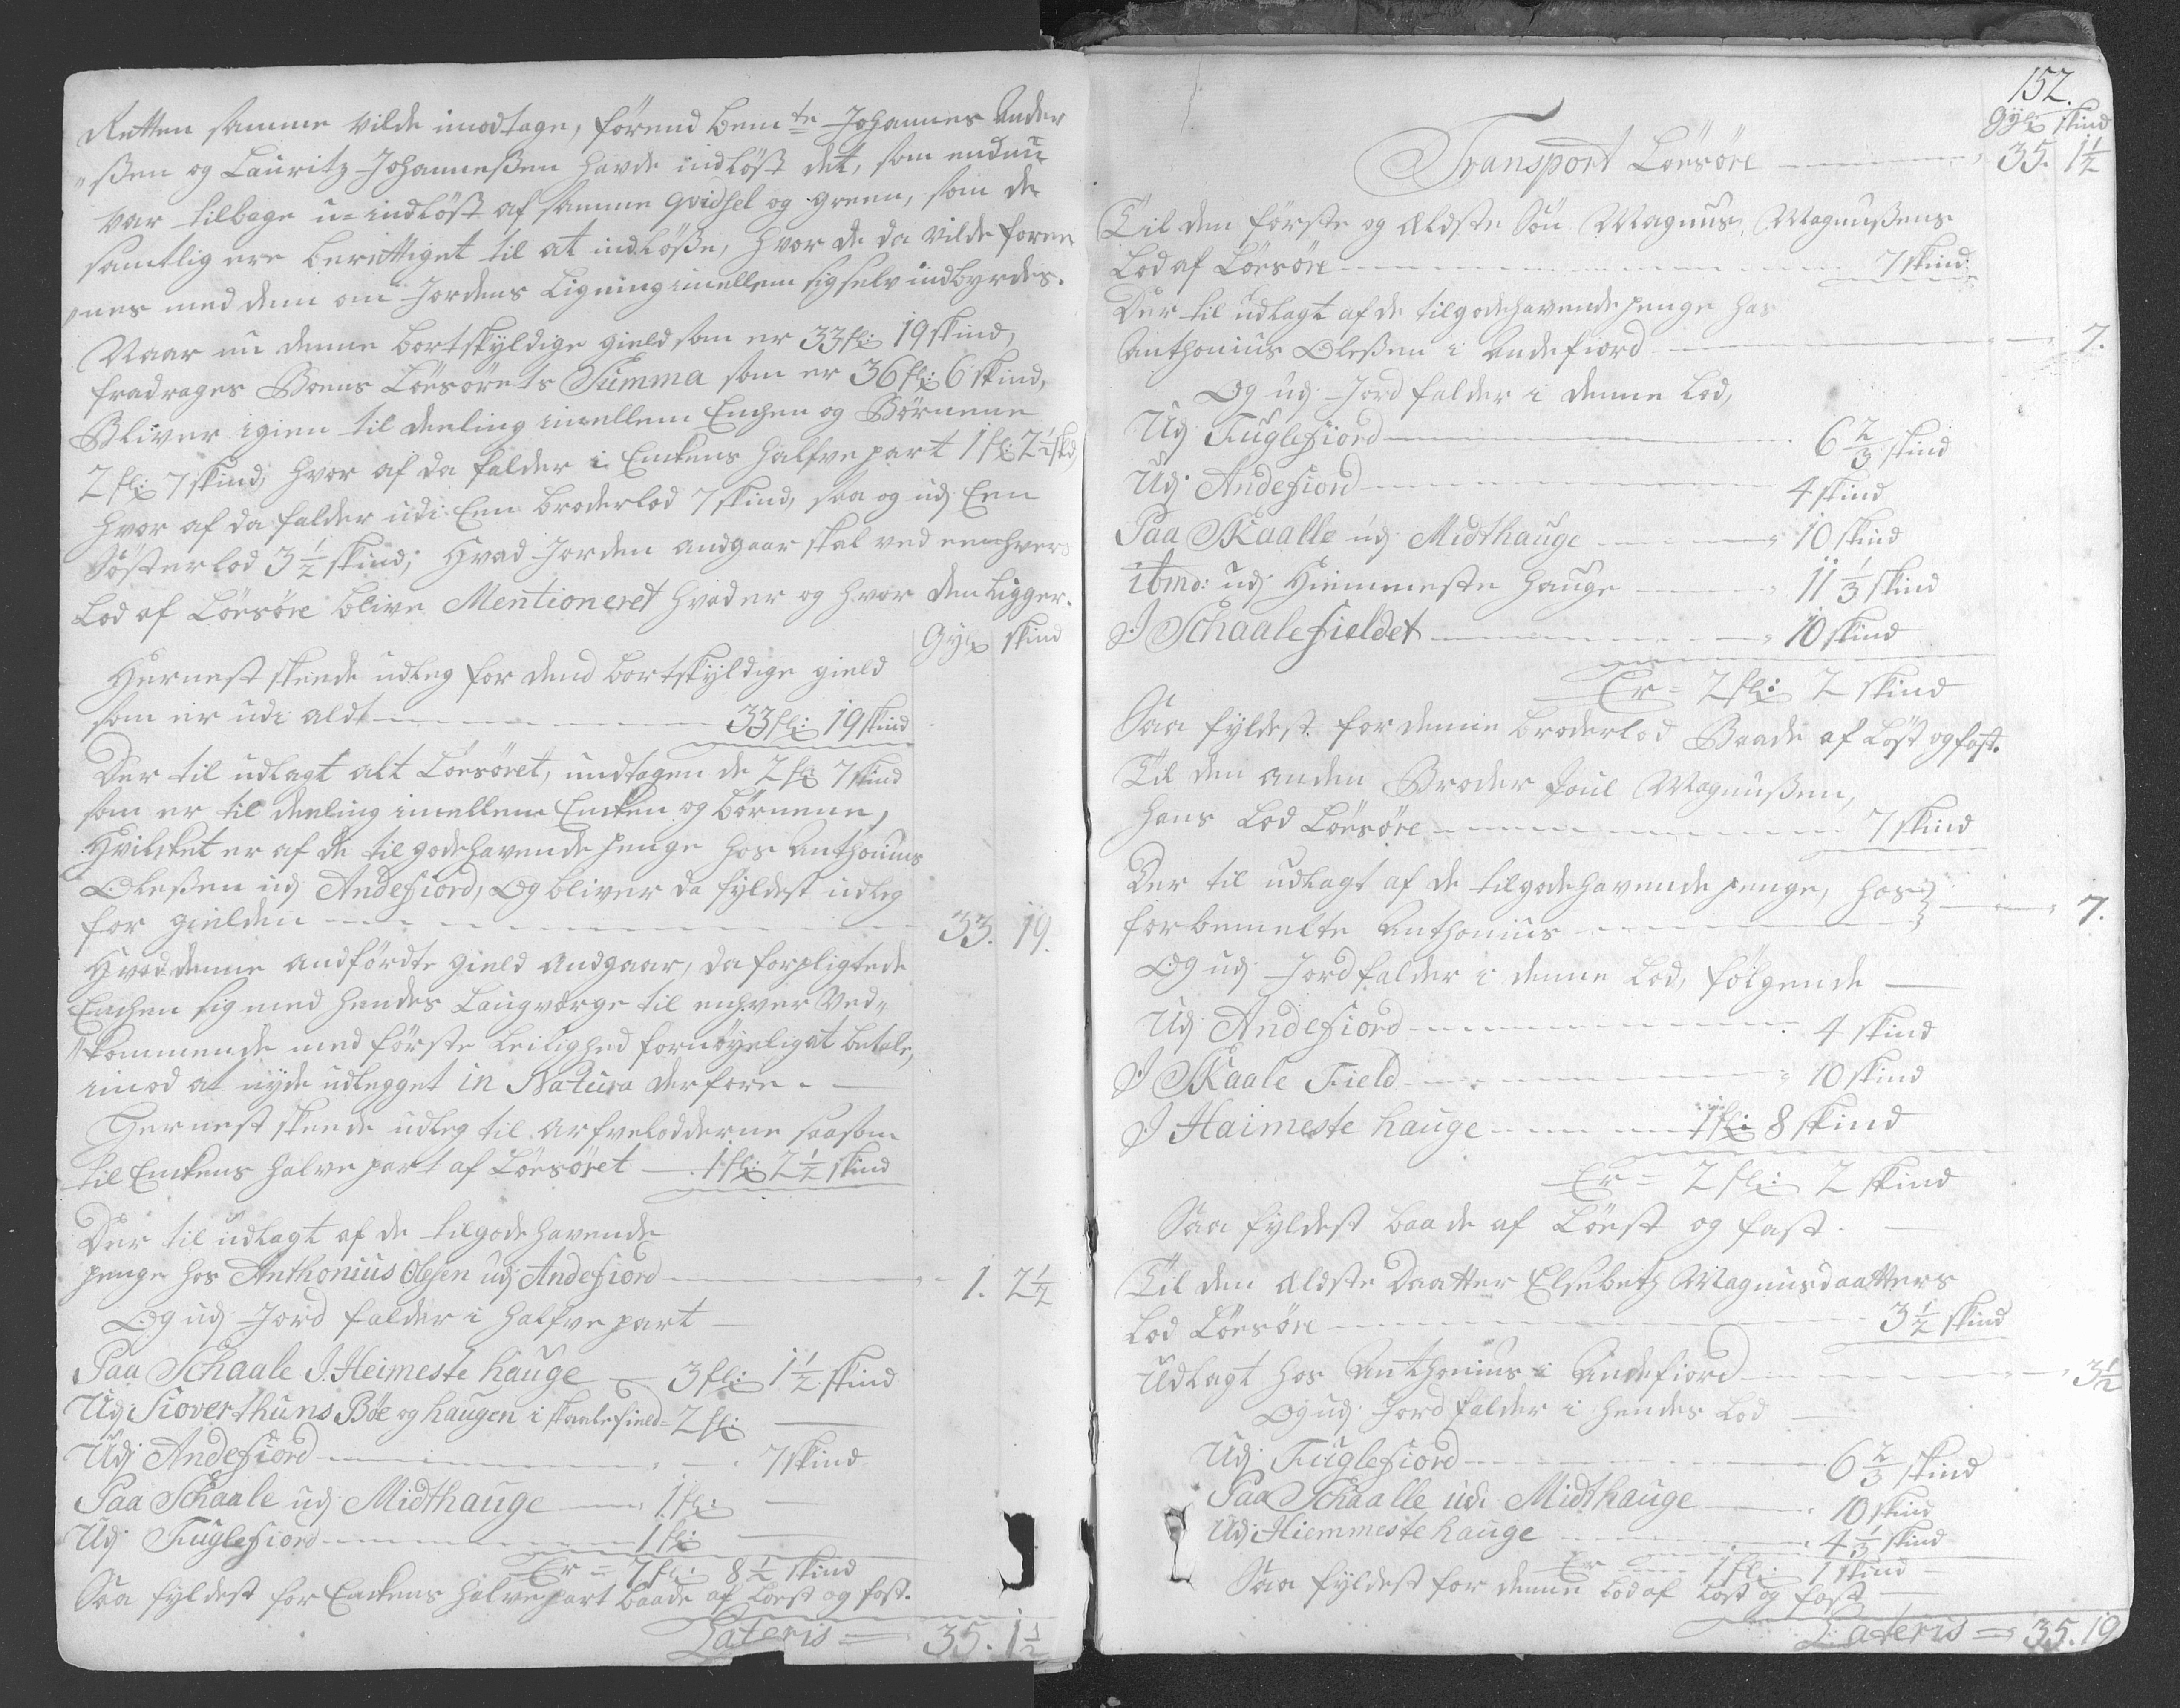 Retten samme vilde imodtage, förend bemte Johannes Ander
„ßen og Lauritz Johanneßen havde indlöst det, som endnu
var tilbage u-indlöst af samme qvidsel og green, som de
samtlig ere berettiget til at indlöße, hvor de da vilde foree
„nes med dem om Jordens Ligning imellem sig selv indbyrdes.
Naar nu denne bortskyldige gield som er 33 fl: 19 skind,
fradrages Boens Löesörets Summa som er 36 fl: 6 skind,
Bliver igien til deeling imellem Enchen og Börnene
2 fl: 7 skind, hvor af da falder i Enkens halfve part 1 fl: 2½ skd
hvor af da falder udi Een broderlod 7 skind, saa og udj Een
Sösterlod 3½ skind; Hvad Jorden andgaar skal ved eenhvers
Lod af Löesöre blive Mentioneret hvad er og hvor den Ligger.
Gyl: skind
Hernest skeede udleg for dend bortskyldige gield
som er udi aldt 33 fl: 19 skind
Der til udlagt alt Löesöret, undtagen de 2 fl: 7 skind
som er til deeling imellem Encken og börnene,
Hvilcket er af de tilgodehavende penge hos Anthonius
Oleßen udj Andefiord, Og bliver da fyldest udleg
for gielden 33. 19.
Hvad denne andfördte gield andgaar, da forpligtede
Enchen sig med hendes Laugværge til enhver Ved„
„kommende med förste Leilighed fornöyeligst betale,
imod at nyde udlegget in Natura derfore.
Hernest skeede udleg til arfvelodderne saasom
til Enckens halve part af Löesöret 1 fl: 2½ skind
Der til udlagt af de tilgodehavende
penge hos Anthonius Olesen udj Andefiord 1. 2½
Og udj Jord falder i halfve part
Paa Schaale J. Heimeste hauge 3 fl: 1½ skind
Udj Sioverthuns Böe og haugen i skaalefield 2 fl:
Udj Andefiord 7 skind
Paa Schaale udj Midthauge 1 fl:
Udj Fuglefiord 1 fl:
Er = 7 fl: 8½ skind
Saa fyldest for Enckens halvepart baade af Löest og fast.
Lateris = 35. 1½
152.
Gyl: skind
Transport Löesöre 35. 1½
Til den förste og ældste Sön Magnus Magnußens
Lod af Löesöre 7 skind
Der til udlagt af de tilgodehavende penge hos
Anthonius Oleßen i Andefiord 7.
Og udj Jord falder i denne Lod,
Udj Fuglefiord 6⅔ skind
Udj Andefiord 4 skind
Paa Skaalle udj Midthauge 10 skind
ibmd: udj Hiemmeste hauge 11⅓ skind
J Schaalefieldet 10 skind
Er = 2 fl: 2 skind
Saa fyldest for denne broderlod Baade af Löst og fast.
Til den anden Broder Joul Magnußen,
hans Lod Löesöre 7 skind
Der til udlagt af de tilgodehavende penge, hos
forbemelte Anthonius 7.
Og udj Jord falder i denne Lod, fölgende
Udj Andefiord 4 skind
J Skaale Field 10 skind
J Haimeste hauge 1 fl: 8 skind
Er = 2 fl: 2 skind
Saa fyldest baade af Löest og fast.
Til den ældste Daatter Elsebeth Magnusdaatters
Lod Löesöre 3½ skind
Udlagt hos Anthonius i Andefiord 3½
Og udj Jord falder i hendes Lod
Udj Fuglefiord 6⅔ skind
Paa Schaalle udi Midthauge 10 skind
Udj Hiemmeste hauge 4⅓ skind
Er 1 fl: 1 skind
Saa fyldest for denne Lod af Löst og fast
Lateris = 35. 19